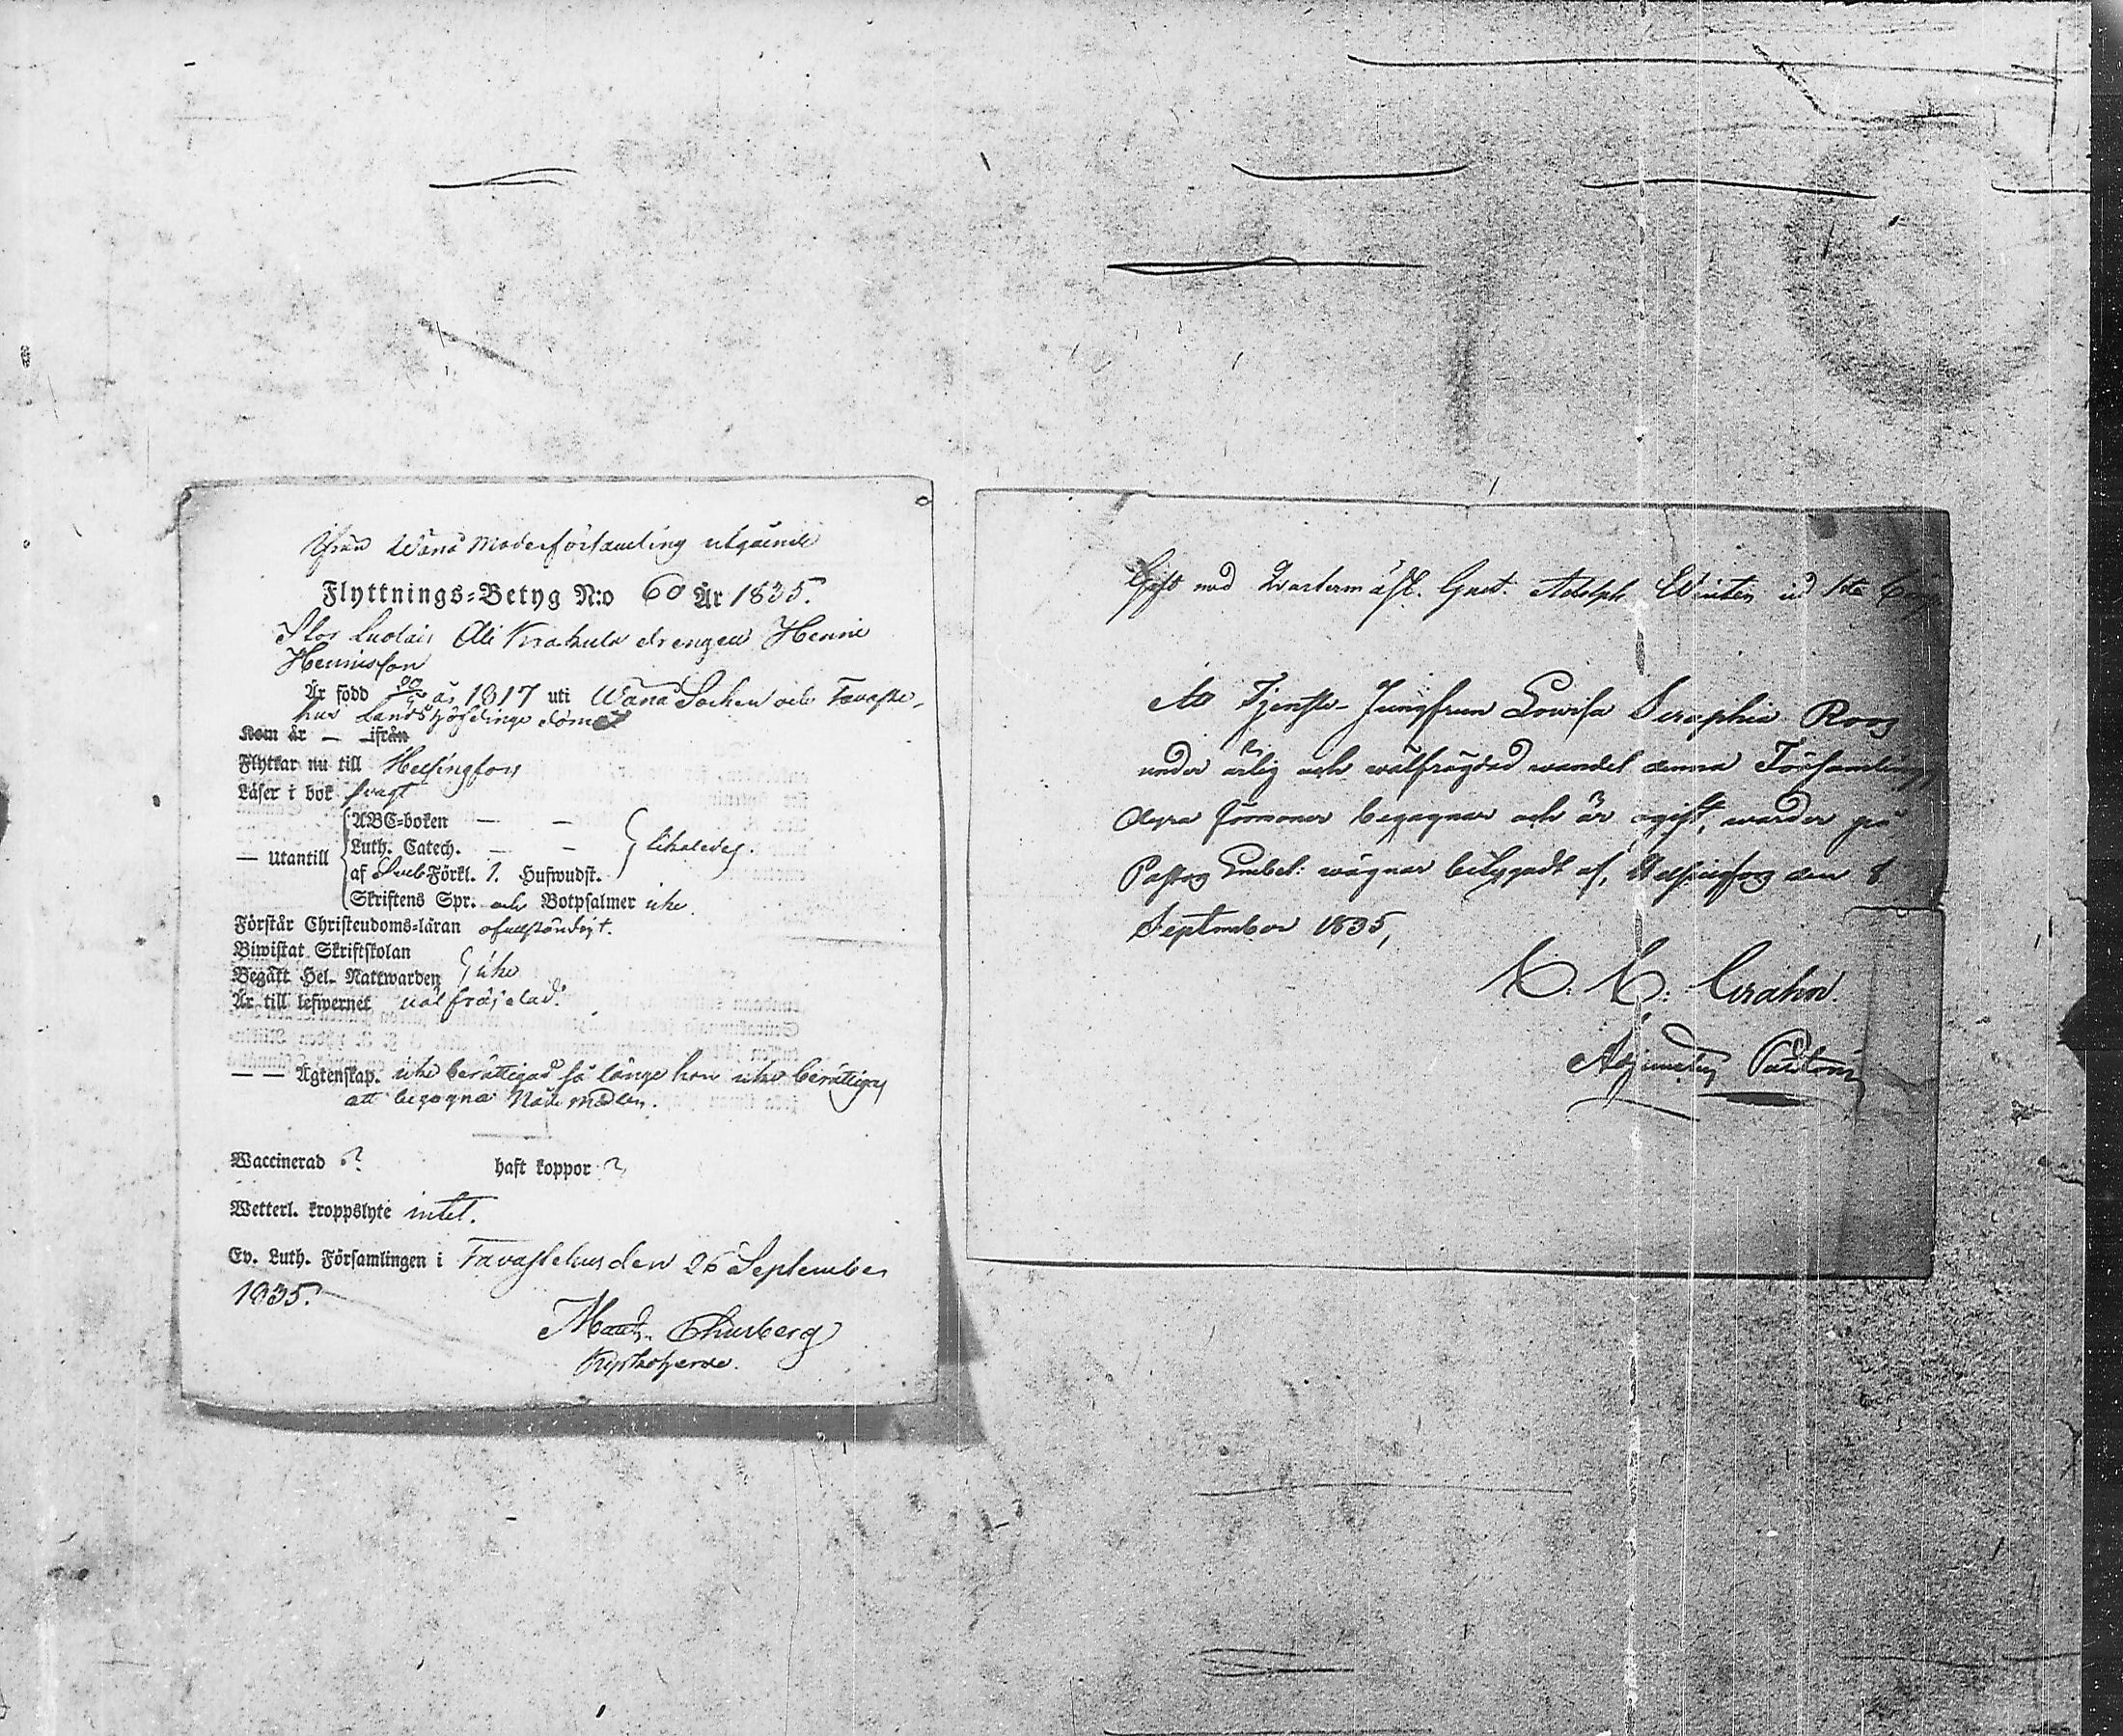 Ifrån Wånå Moderförsamling utgående
Flyttnings-Betyg N:o 60 År 1835.
Stor Luolais Ali Krakula drengen Henric
Henricsson
Är född år 1817 uti Wånå Socken och Tavaste-
hus Landshöfdinge döme
Kom år — ifrån
Flyttar nu till Helsingfors
Läser i bok svagt
ABC-boken — —
Luth. Catech. — — likaledes.
— utantill
af Förkl. 1. Hufwudst.
Skriftens Spr. och Botpsalmer icke
Förstår Christendoms-läran ofullständigt.
Biwistat Skriftskolan
Begått Hel. Nattwarden icke
Är till lefwernet väl fräjdad.
— — Ägtenskap. icke berättigad så länge han icke berättigas
att begagna Nådemedlen.
Waccinerad ? haft koppor ?
Wetterl. kroppslyte intet.
Ev. Luth. Församlingen i Tavastehus den 26 September
1835.
Thurberg
Kyrkoherde.
Gift med Qvartermäst. Gust. Adolph Winter vid 1sta
At Tjenste-Jungfrun Lovisa Seraphia Roos
under ärlig och wälfrägdad wandel denna Församlings
dyra förmoner begagnar och är ogift, warder på
Pastors Embet: wägnar betygadt af, Helsingfors den 8
September 1835,
Crahn.
Pastor